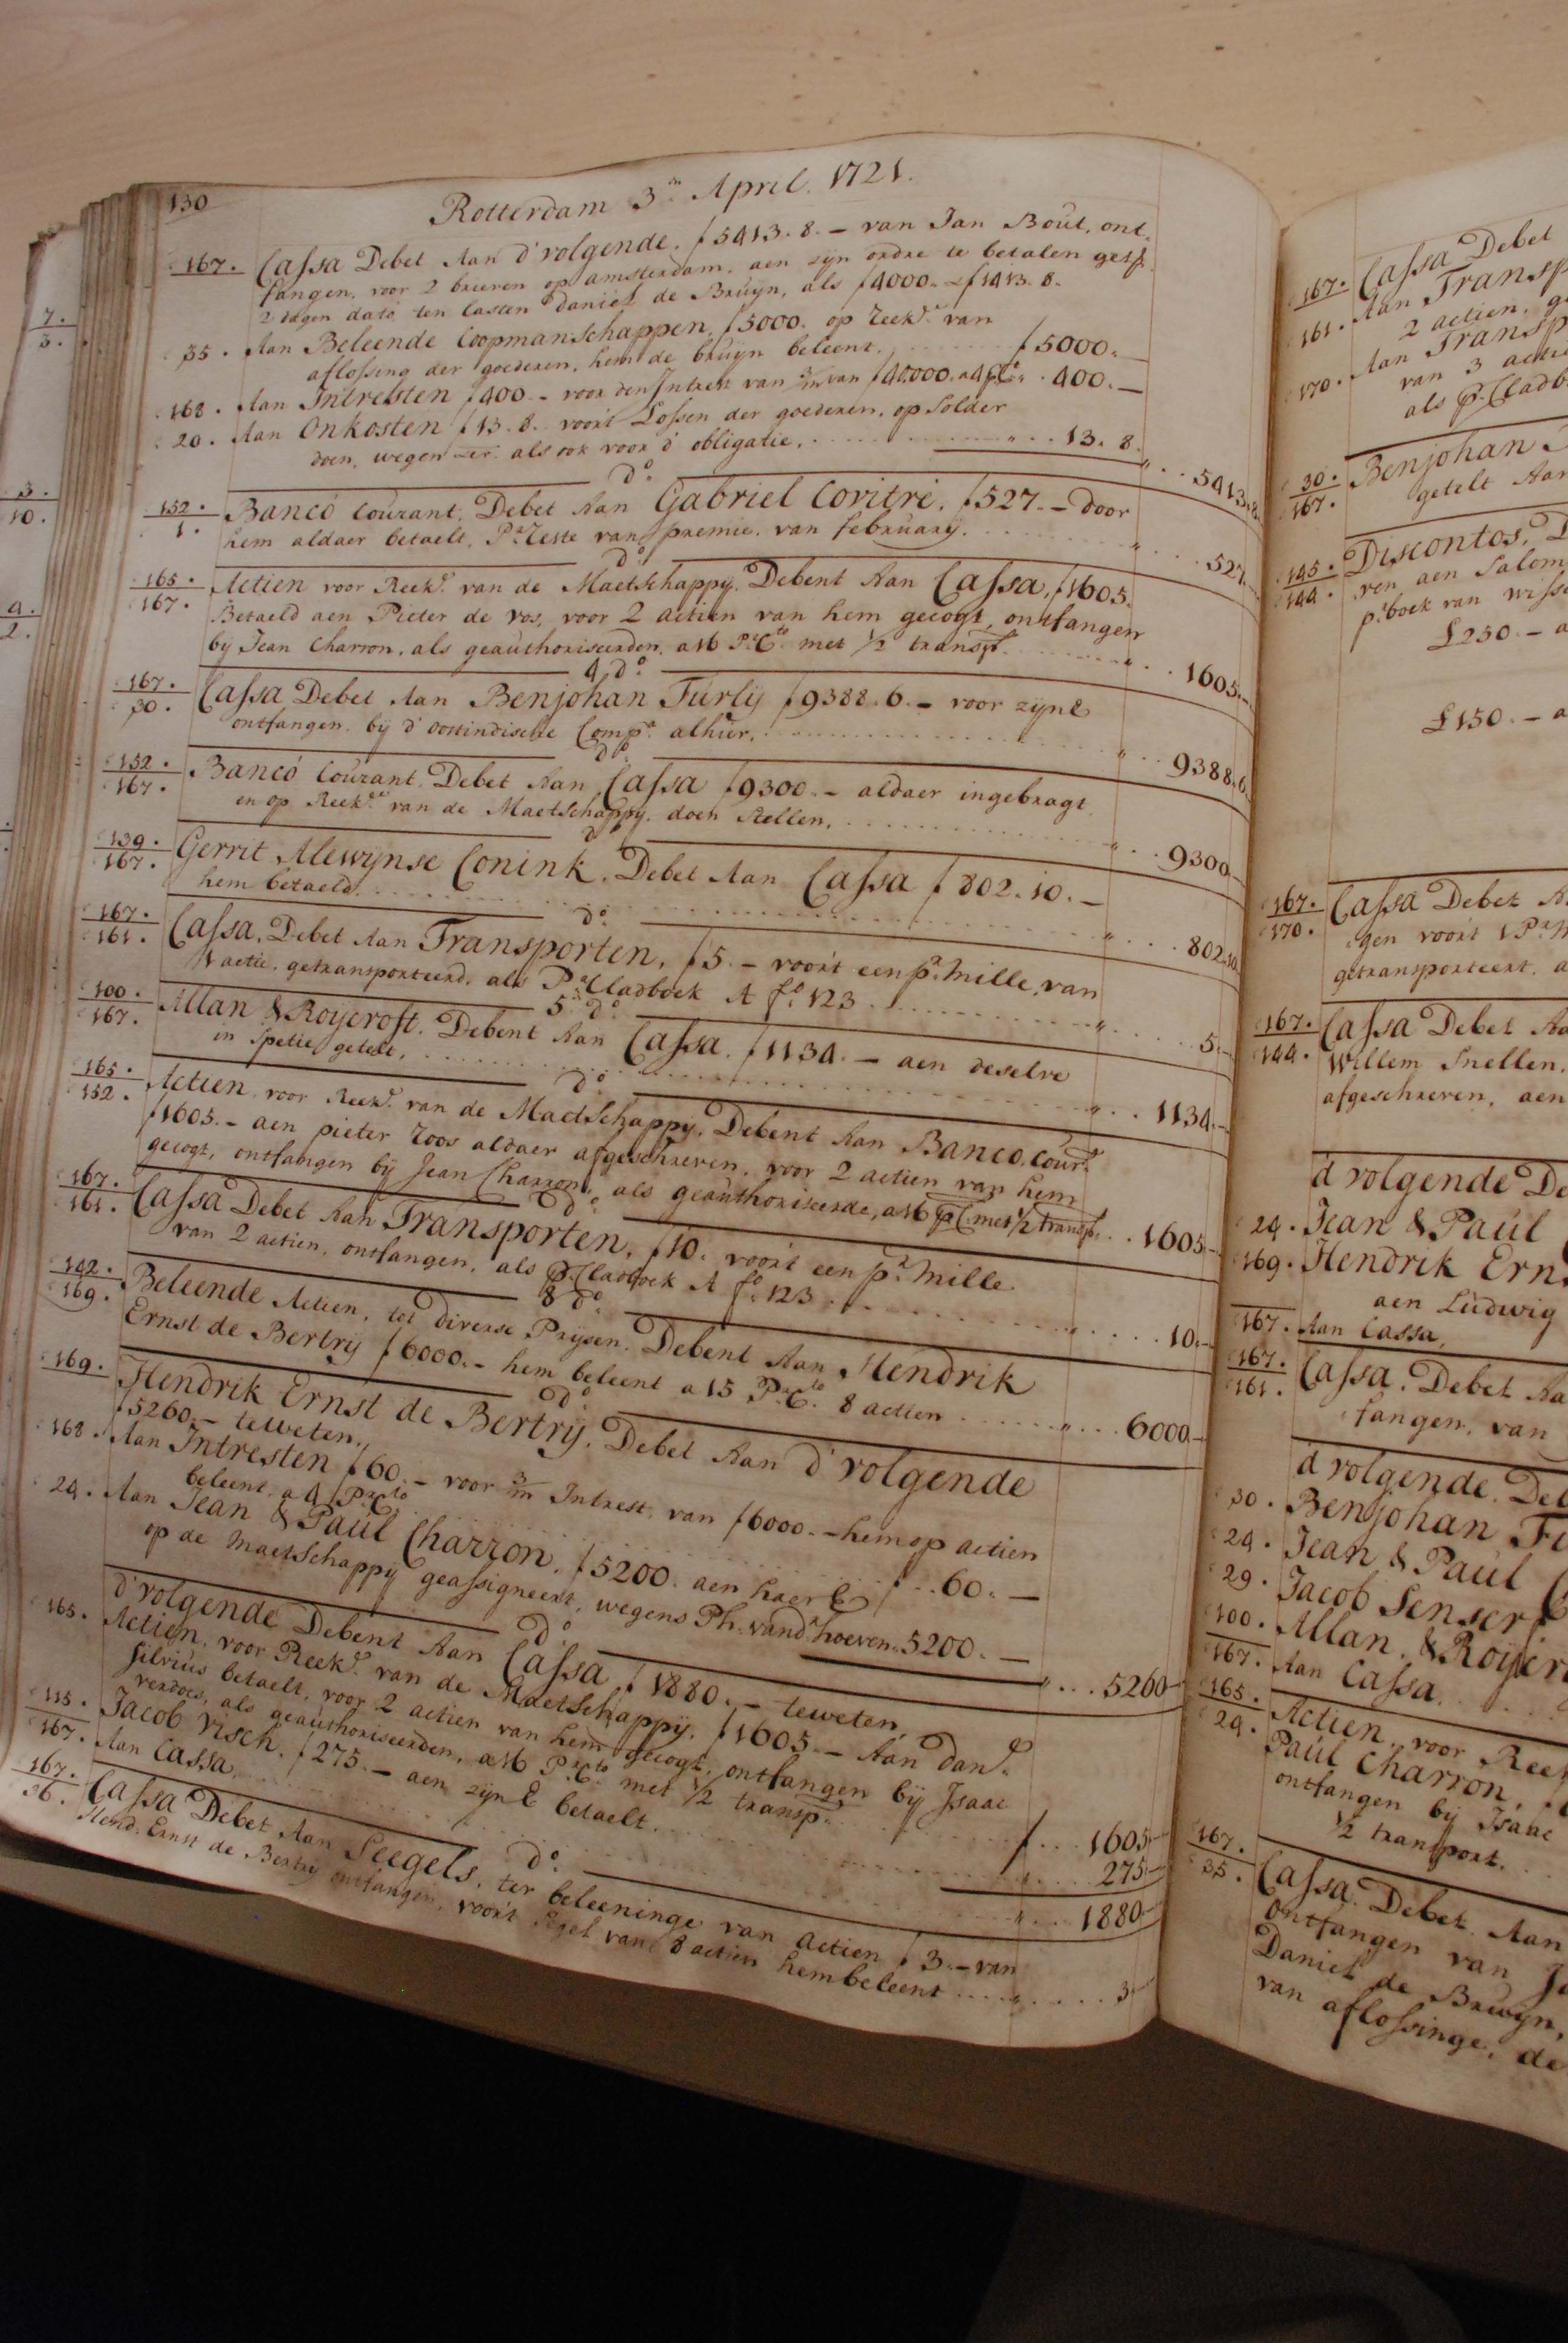 130
Rotterdam 3.n April. 1721.
167. Cassa Debet Aan d'volgende. f 5413. 8. – van Jan Bout, ont-
fangen, voor 2 brieven op amsterdam, aen zijn ordre te betalen
2 dagen dato, ten lasten Daniel de Bruijn, als f 4000. – f 1413. 8.
35. Aan Beleende Coopmanschappen, f 5000. op Reek.g van
aflossing der goederen, hem de bruijn beleent. f 5000. –
168. Aan Intresten f 400. – voor den Intrest van 3/m van f 40000. a 4 p C.to 400. –
20. Aan Onkosten f 13. 8. voor't Lossen der goederen, op Solder
doen, wegen als ook voor d' obligatie. 13. 8.
" 5413. 8.
d.o
152. Banco Courant. Debet Aan Gabriel Covitré. f 527. – door
1. hem aldaer betaelt, P.r Reste van premie. van february. " 527. –
d.o
165. Actien voor Reek.g van de Maetschappij. Debent Aan Cassa, f 1605.
167. Betaeld aen Pieter de Vos, voor 2 actien van hem gecogt, ontfangen
bij Jean Charron, als geauthoriseerden, a 16 P.r C.to met 1/2 transp. " 1605. –
4 d.o
167. Cassa Debet Aan Benjohan Furlij f 9388. 6. – voor zijn E
30. ontfangen. bij d' Oostindische Comp.e alhier. " 9388. 6.
d.o
152. Banco Courant. Debet Aan Cassa f 9300. – aldaer ingebragt
167. en op Reek.g van de Maetschappij. doen stellen. " 9300. –
d.o
139. Gerrit Alewijnse Conink. Debet Aan Cassa f 802. 10. –
167. hem betaeld. " 802. 10.
d.o
167. Cassa. Debet Aan Transporten, f 5. – voor't een p.r Mille, van
161. 1 actie, getransporteerd, als P.r Cladboek A f.o 123 " 5. –
5 d.o
100. Allan & Roijcroft. Debent Aan Cassa. f 1134. – aen deselve
167. in Spetie getelt. " 1134. –
d.o
165. Actien, voor Reek.g van de Maetschappij. Debent Aan Banco. Cour.t
152. f 1605. – aen pieter Roos aldaer afgeschreven, voor 2 actien van hem
gecogt, ontfangen bij Jean Charron, als geauthoriseerde, a 16 p C met 1/2 transp. 1605. –
d.o
167. Cassa Debet Aan Transporten, f 10. voor't een p.r Mille
161. van 2 actien, ontfangen, als p.r Cladboek A f.o 123 " 10. –
8 d.o
142. Beleende Actien, tot diverse Prijsen. Debent Aan Hendrik
169. Ernst de Bertrij f 6000. – hem beleent a 15 P.r C.to 8 actien " 6000. –
d.o
169. Hendrik Ernst de Bertrij. Debet Aan d'volgende
f 5260. – teweten.
168. Aan Intresten f 60. – voor 3/m Intrest, van f 6000. – hem op actien
beleent. a 4 P.r C.to f 60. –
24. Aan Jean & Paul Charron. f 5200. aen haer E
op de Maetschappij geassigneert, wegens Ph. vand.r hoeven. 5200. –
" 5260 –
d.o
d'volgende Debent Aan Cassa f 1880. – teweten,
165. Actien, voor Reek.g van de Maetschappij. f 1605. – Aan Dan.l
Silvius betaelt, voor 2 actien van hem gecogt, ontfangen bij Isaac
verdoes, als geauthoriseerden, a 16 P.r C.to met 1/2 transp. f 1605 –
115. Jacob Visch. f 275. – aen zijn E betaelt. " 275 –
167. Aan Cassa. " 1880 –
d.o
167. Cassa Debet Aan Seegels, ter beleeninge van actien f 3. – van
36. Hend. Ernst de Bertrij ontfangen, voor't Segel van 8 actien hem beleent " 3 –
7.
3.
3.
10.
4.
2.
167. Cassa Debet
161. Aan Transp
2 actien, g
170. Aan Transp
van 3 actie
als p.r Cladb
30. Benjohan
167. getelt Aan
145. Discontos. D
144. ven aen Salom
p.r boek van wisse
£ 250. – a
£ 150. – a
167. Cassa Debet A
170. gen voor't 1 P.r M
getransporteert. a
167. Cassa Debet Aa
144. Willem Snellen.
afgeschreven, aen
d volgende De
24. Jean & Paul
169. Hendrik Ern
aen Ludwig
167. Aan Cassa,
167. Cassa. Debet Aa
161. fangen, van
d volgende. Deb
30. Benjohan Fu
24. Jean & Paul C
29. Jacob Senserf
100. Allan & Roijcr
167. Aan Cassa.
165. Actien, voor Reek
24. Paul Charron,
ontfangen bij Isaac
1/2 transport.
167. Cassa. Debet Aan
35. Ontfangen van J
Daniel de Bruijn,
van aflossinge, de